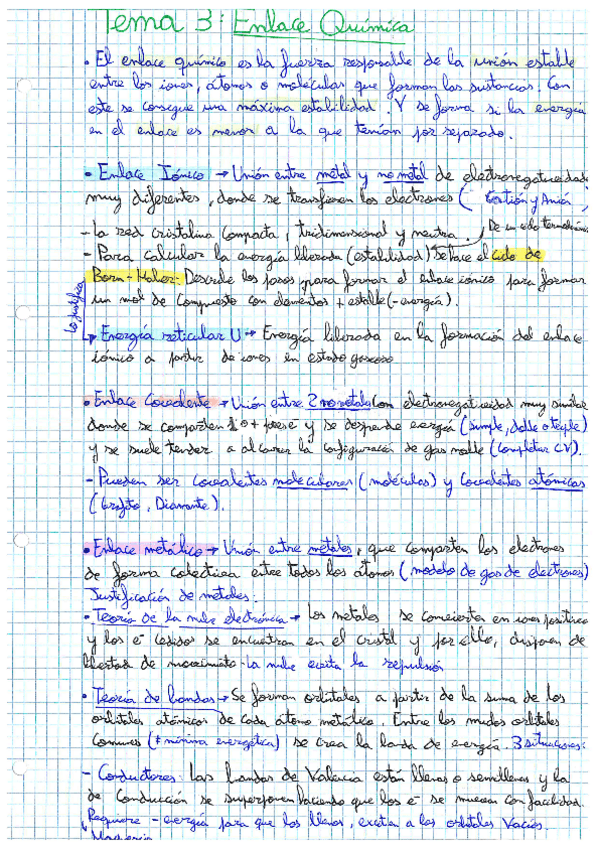 Tema 3: Enlace Química
• El enlace químico es la fuerza responsable de la unión estable
entre los iones, átomos o moléculas que forman las sustancias. Con
este se consegue una máxima estabilidad. Y se forma si la energía
en el enlace es menor a la que tenían por separado.
• Enlace Iónico → Unión entre metal y no metal de electronegatividades
muy diferentes, donde se transfieren los electrones (Catión y Anión)
- La red cristalina compacta, tridimensional y neutra. De un ciclo termodinámico
- Para calcular la energía liberada (estabilidad) se hace el ciclo de
Born-Haber: Describe los pasos para formar el enlace iónico para formar
un mol de compuesto con elementos + estable (- energía).
Lo justifica
↳ Energía reticular U → Energía liberada en la formación del enlace
iónico a partir de iones en estado gaseoso
• Enlace Covalente → Unión entre 2 no metales con electronegatividad muy similar
donde se comparten 1 o + pares e⁻ y se desprende energía (simple, doble o triple)
y se suele tender a alcanzar la configuración de gas noble (Completar CV).
- Pueden ser Covalentes moleculares (moléculas) y Covalentes atómicas
(Grafito, Diamante).
• Enlace metálico → Unión entre metales, que comparten los electrones
de forma colectiva entre todos los átomos (modelo de gas de electrones)
Justificación de metales:
• Teoría de la nube electrónica → Los metales se convierten en iones positivos
y los e⁻ cedidos se encuentran en el cristal y por ello, disponen de
libertad de movimiento. La nube evita la repulsión
• Teoría de bandas → Se forman orbitales a partir de la suma de los
orbitales atómicos de cada átomo metálico. Entre los muchos orbitales
comunes (≠ mínima energética) se crea la banda de energía. 3 situaciones:
- Conductores: Las bandas de Valencia están llenas o semillenas y la
de Conducción se superponen haciendo que los e⁻ se muevan con facilidad.
Requiere - energía para que los llenos, excitan a los orbitales Vacíos.